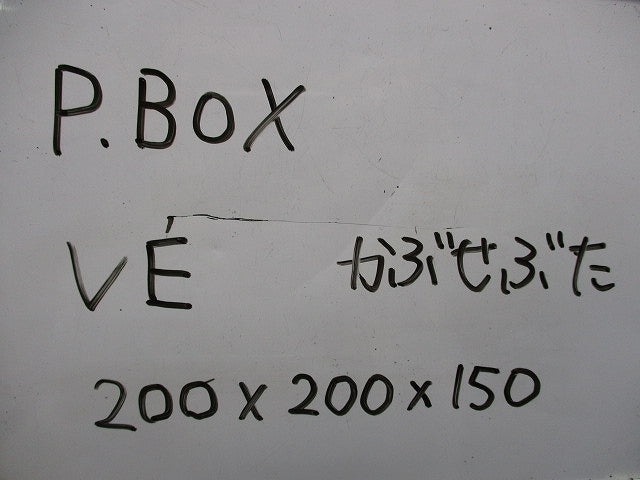 P.BOX
VÉ かぶせぶた
200x200x150